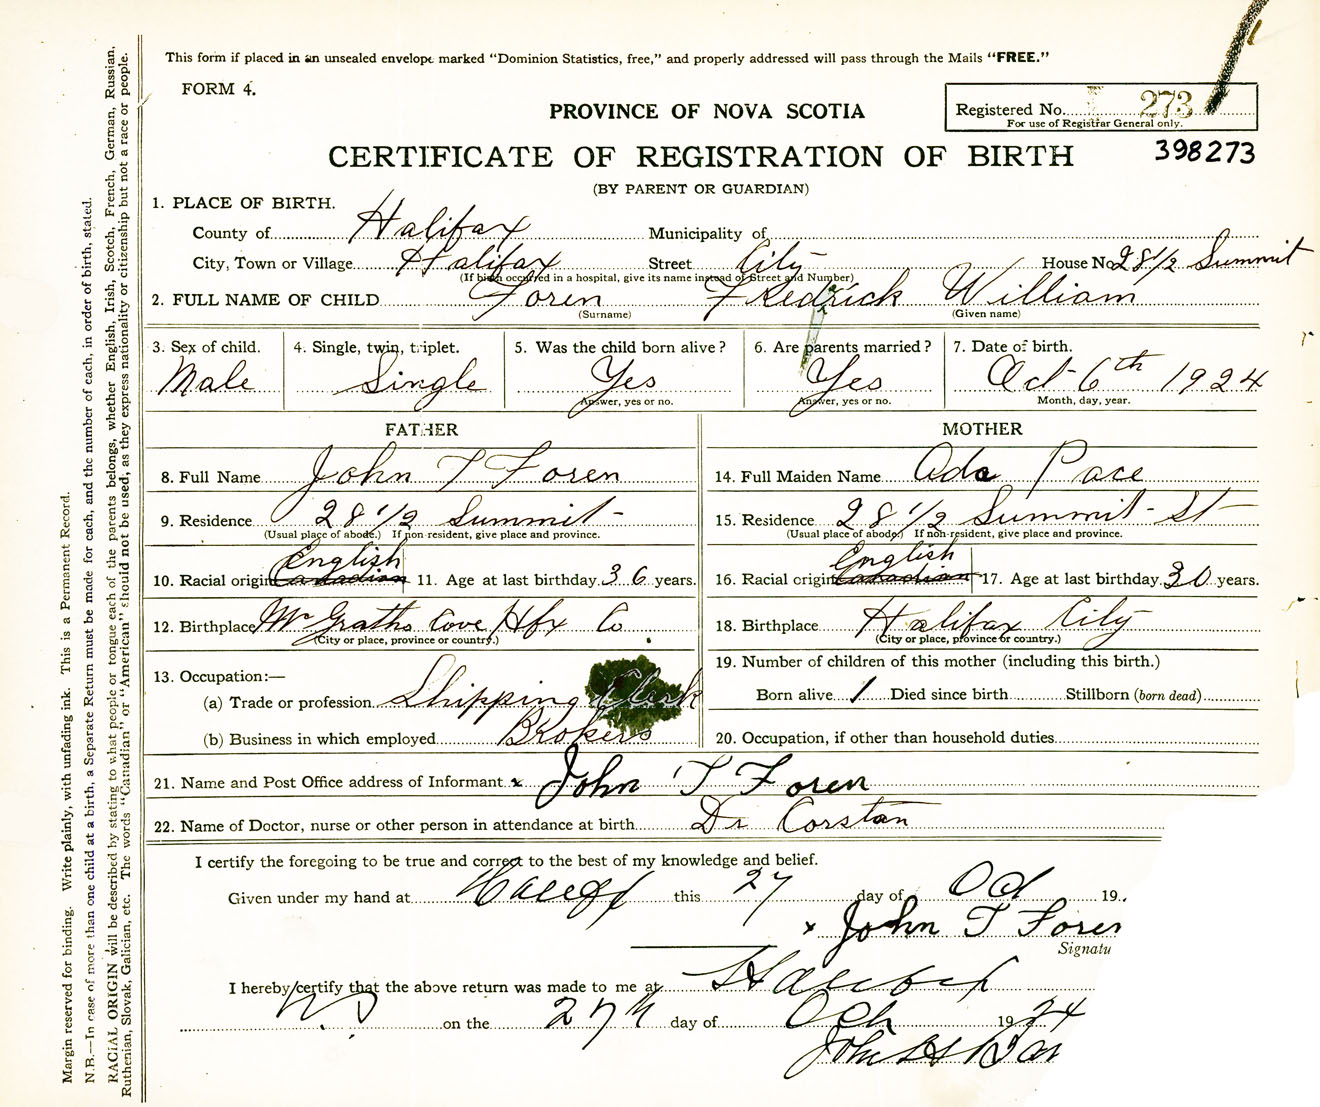 This form if placed in an unsealed envelope marked "Dominion Statistics, free," and properly addressed will pass through the Mails "FREE."
FORM 4.
PROVINCE OF NOVA SCOTIA
Registered No. 273
For use of Registrar General only.
398273
CERTIFICATE OF REGISTRATION OF BIRTH
(BY PARENT OR GUARDIAN)
1. PLACE OF BIRTH.
County of Halifax Municipality of
City, Town or Village Halifax Street City House No. 28 1/2 Summit
(If birth occurred in a hospital, give its name instead of Street and Number)
2. FULL NAME OF CHILD Foren Fredrick William
(Surname) (Given name)
3. Sex of child. 4. Single, twin, triplet. 5. Was the child born alive? 6. Are parents married? 7. Date of birth.
Male Single Yes Yes Oct 6th 1924
Answer, yes or no. Answer, yes or no. Month, day, year.
FATHER MOTHER
8. Full Name John T Foren 14. Full Maiden Name Ada Pace
9. Residence 28 1/2 Summit 15. Residence 28 1/2 Summit St
(Usual place of abode.) If non-resident, give place and province. (Usual place of abode.) If non-resident, give place and province.
English English
10. Racial origin Canadian 11. Age at last birthday 36 years. 16. Racial origin Canadian 17. Age at last birthday 30 years.
12. Birthplace McGraths Cove Hfx Co 18. Birthplace Halifax City
(City or place, province or country.) (City or place, province or country.)
13. Occupation:— 19. Number of children of this mother (including this birth.)
(a) Trade or profession Shipping Clerk Born alive 1 Died since birth Stillborn (born dead)
(b) Business in which employed Brokers 20. Occupation, if other than household duties
21. Name and Post Office address of Informant x John T Foren
22. Name of Doctor, nurse or other person in attendance at birth Dr Corstan
I certify the foregoing to be true and correct to the best of my knowledge and belief.
Given under my hand at this 27 day of Oct 19
x John T Foren
Signatu
I hereby certify that the above return was made to me at Halifax
N.S on the 27th day of Oct 1924
John H
Margin reserved for binding. Write plainly, with unfading ink. This is a Permanent Record.
N.B.—In case of more than one child at a birth, a Separate Return must be made for each, and the number of each, in order of birth, stated.
RACIAL ORIGIN will be described by stating to what people or tongue each of the parents belongs, whether English, Irish, Scotch, French, German, Russian,
Ruthenian, Slovak, Galician, etc. The words "Canadian" or "American" should not be used, as they express nationality or citizenship but not a race or people.